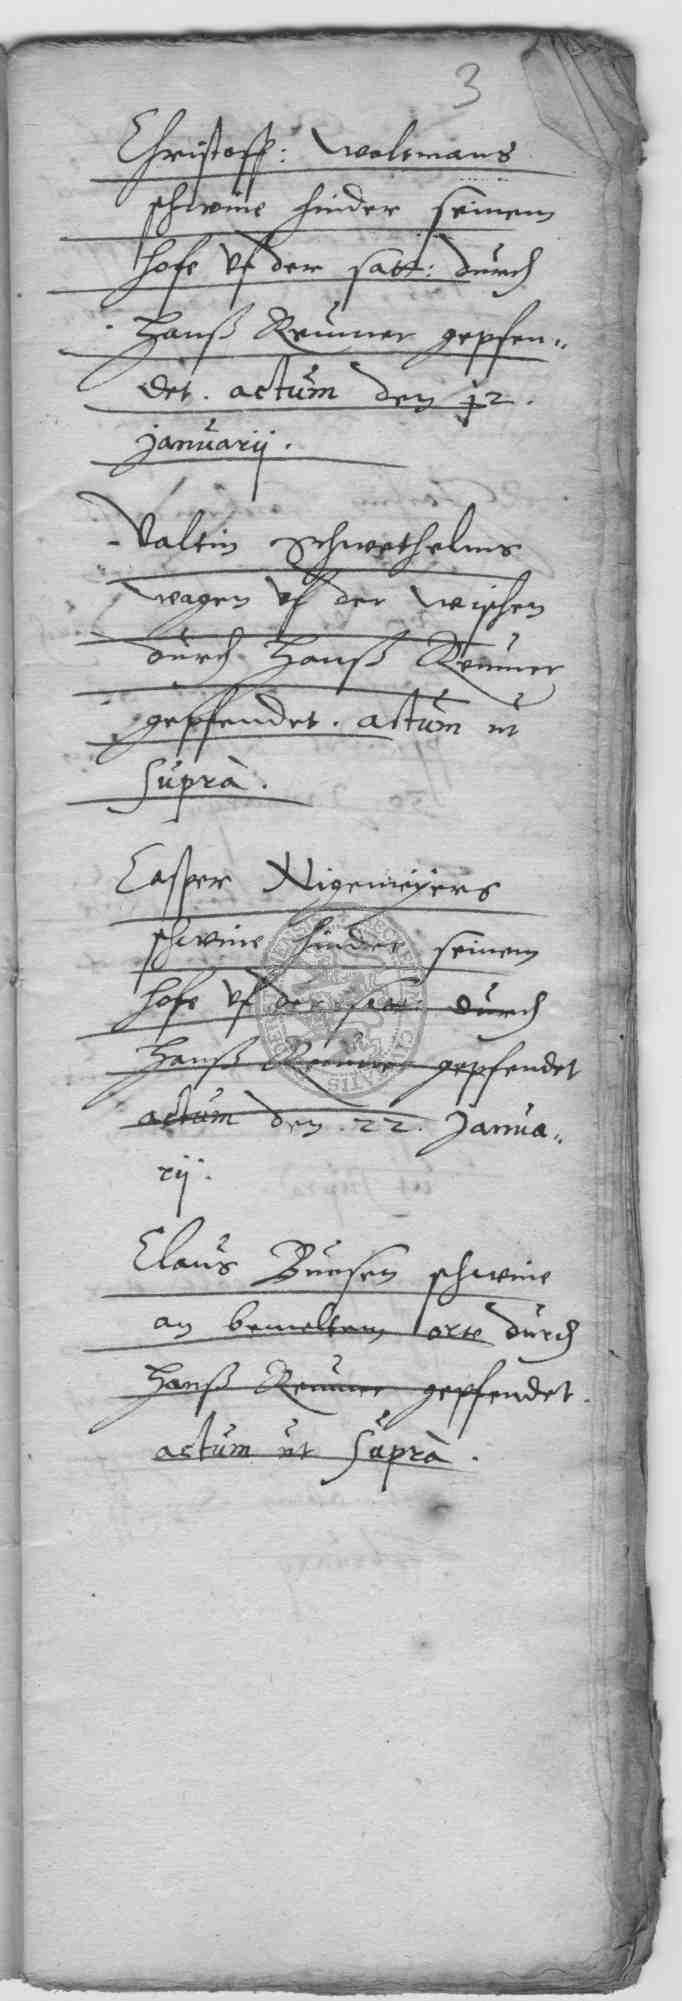 3
Christoff: Woltmans
schweine hinder seinem
hofe vf der satt: durch
Hanß Reuner gepfen„
det. actum den 12.
januarij.
Valtin Schwethelms
wagen vf der wischen
durch Hanß Reuner
gepfendet. actum ut
suprà.
Casper Nigemeyers
schweine hinder seinem
hofe vf der durch
Hanß Reuner gepfendet
actum den .22. Janua„
rij.
Claus Buesen schweine
an bemeltem orte durch
Hanß Reuner gepfendet.
actum ut suprà.